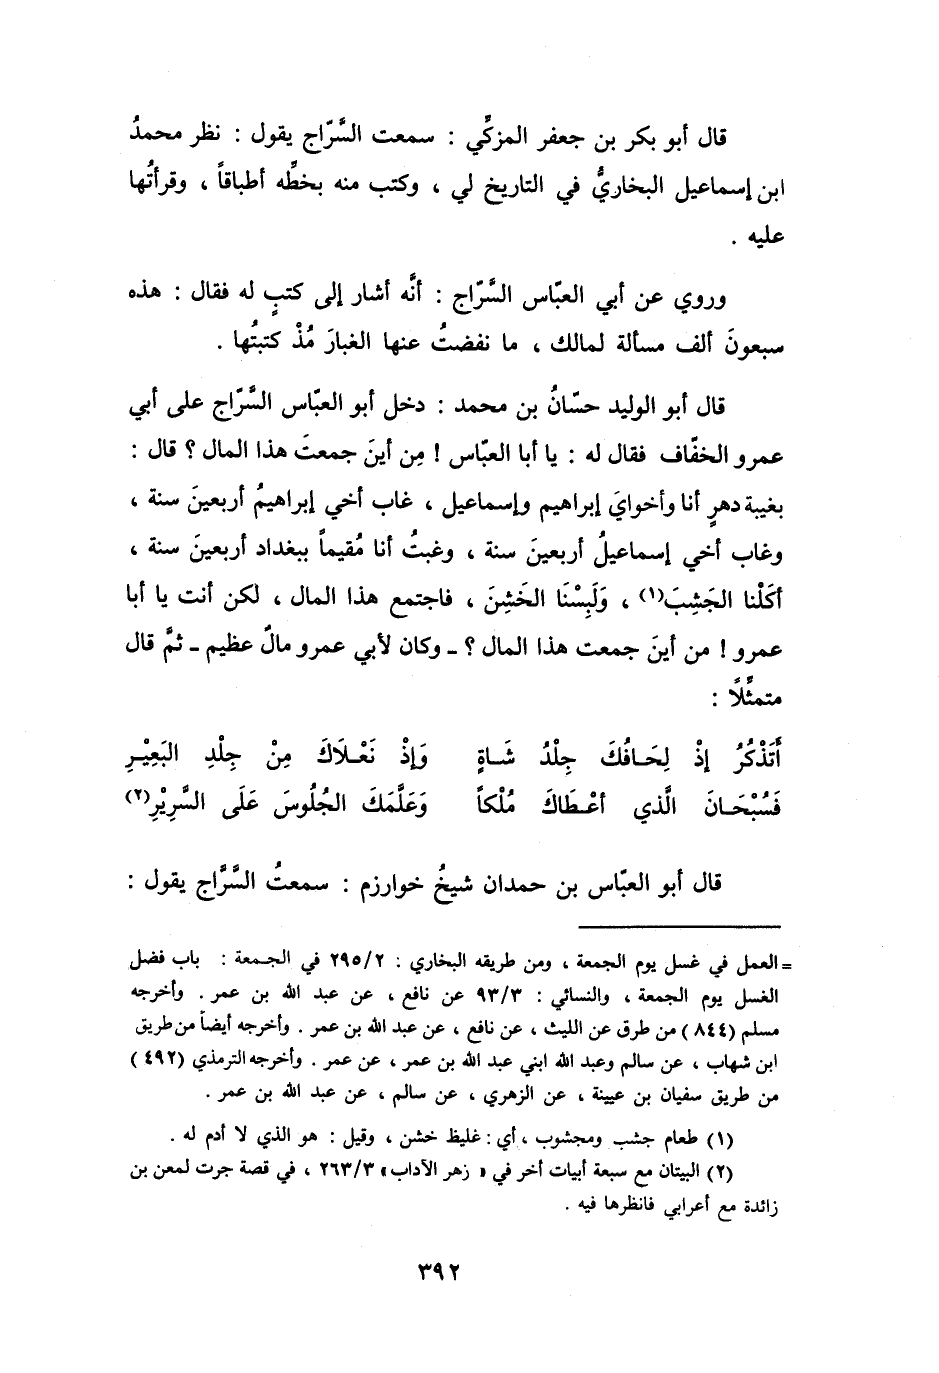 قال أبو بكر بن جعفر المزكِّي : سمعت السَّرّاج يقول : نظر محمدُ
ابن إسماعيل البخاريُّ في التاريخ لي ، وكتب منه بخطِّه أطباقاً ، وقرأتُها
عليه .
وروي عن أبي العبّاس السَّرّاج : أنَّه أشار إلى كتبٍ له فقال : هذه
سبعونَ ألف مسألة لمالك ، ما نفضتُ عنها الغبارَ مُذْ كتبتُها .
قال أبو الوليد حسّانُ بن محمد : دخل أبو العبّاس السَّرّاج على أبي
عمرو الخفّاف فقال له : يا أبا العبّاس ! مِن أينَ جمعتَ هذا المال ؟ قال :
بغيبة دهرٍ أنا وأخوايَ إبراهيم وإسماعيل ، غاب أخي إبراهيمُ أربعينَ سنة ،
وغاب أخي إسماعيلُ أربعينَ سنة ، وغبتُ أنا مُقيماً ببغداد أربعينَ سنة ،
أكَلْنا الجَشِبَ(١) ، وَلَبِسْنَا الخَشِنَ ، فاجتمع هذا المال ، لكن أنت يا أبا
عمرو ! من أينَ جمعت هذا المال ؟ ـ وكان لأبي عمرو مالٌ عظيم ـ ثمَّ قال
متمثِّلًا :
أَتَذْكُرُ إذْ لِحَافُكَ جِلْدُ شَاةٍ وَإذْ نَعْلَاكَ مِنْ جِلْدِ البَعِيْرِ
فَسُبْحَانَ الَّذي أعْطَاكَ مُلْكاً وَعَلَّمَكَ الجُلُوسَ عَلَى السَّرِيْرِ(٢)
قال أبو العبّاس بن حمدان شيخُ خوارزم : سمعتُ السَّرَّاج يقول :
= العمل في غسل يوم الجمعة ، ومن طريقه البخاري : ٢٩٥/٢ في الجمعة : باب فضل
الغسل يوم الجمعة ، والنسائي : ٩٣/٣ عن نافع ، عن عبد الله بن عمر . وأخرجه
مسلم (٨٤٤) من طرق عن الليث ، عن نافع ، عن عبد الله بن عمر . وأخرجه أيضاً من طريق
ابن شهاب ، عن سالم وعبد الله ابني عبد الله بن عمر ، عن عمر . وأخرجه الترمذي (٤٩٢)
من طريق سفيان بن عيينة ، عن الزهري ، عن سالم ، عن عبد الله بن عمر .
(١) طعام جشب ومجشوب ، أي : غليظ خشن ، وقيل : هو الذي لا أدم له .
(٢) البيتان مع سبعة أبيات أخر في « زهر الآداب » ٢٦٣/٣ ، في قصة جرت لمعن بن
زائدة مع أعرابي فانظرها فيه .
٣٩٢